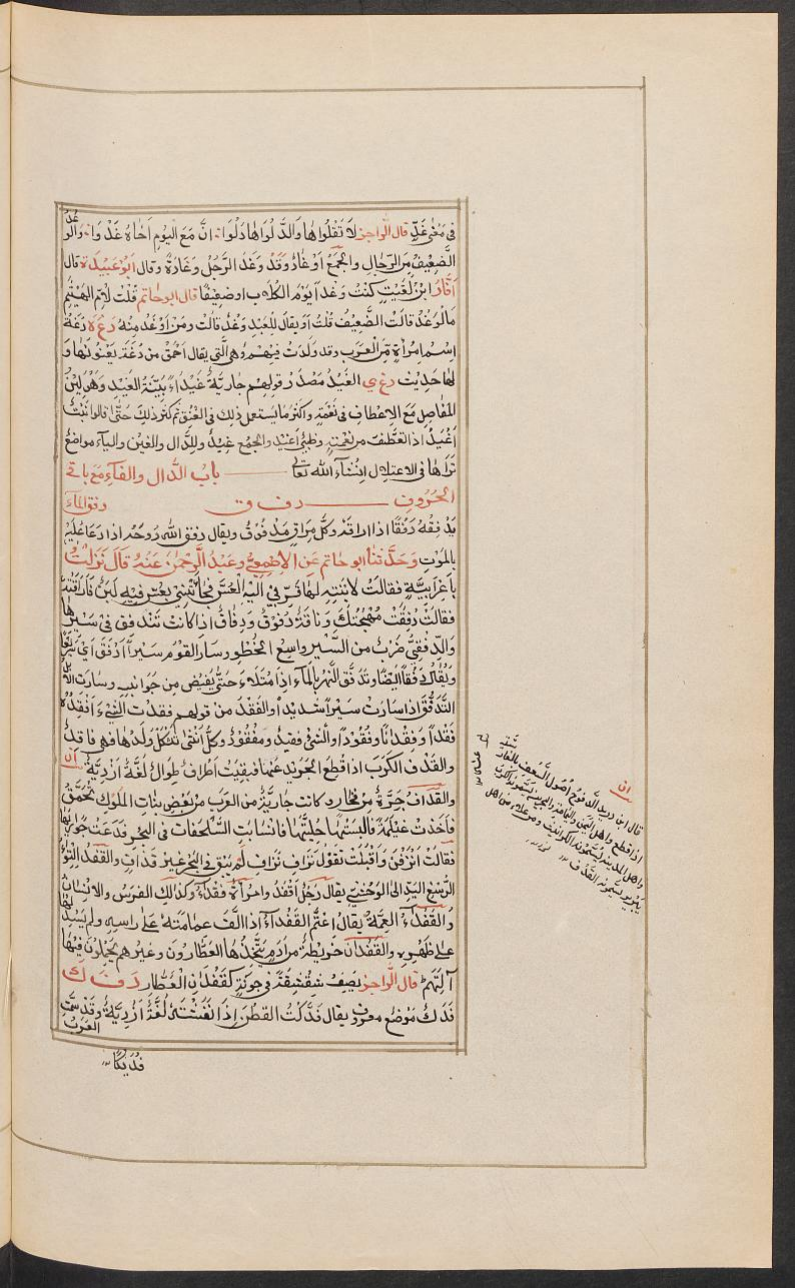 في معنى غدٍ قال الراجز لا تقلواها وادلواها دلوا ان مع اليوم اخاه غدوا والوغد
الضعيف من الرجال والجمع اوغاد وقد وغد الرجل وغادة وقال ابو عبيدة قال
ابن لغيت كنت وغدا يوم الكلاب اي ضعيفا قال ابو حاتم قلت لام الهيثم
ما الوغد قالت الضعيف قلت او يقال للعبد وغد قالت ومن اوغد منه د غ ه دغة
اسم امرأة من العرب وقد ولدت فيهم وهي التي يقال احمق من دغة يعنونها و
لها حديث د غ ي الغيد مصدر قولهم جارية غيداء بينة الغيد وهو لين
المفاصل مع الانعطاف في نعمة واكثر ما يستعمل ذلك في العنق ثم كثر ذلك حتى قالوا نبت
اغيد اذا تعطف من نعمته وظبي اغيد والجمع غيد وللدال والغين والياء مواضع
تراها في الاعتلال ان شاء الله تعالى باب الدال والفاء مع باقي
الحروف د ف ق دفق الماء
يدفقه دفقا اذا اراقه وكل مراق مدفوق ويقال دفق الله روحه اذا دعا عليه
بالموت وحدثنا ابو حاتم عن الاصمعي وعبد الرحمن عنه قال نزلت
باعرابية فقالت لابنة لها قربي اليه العس فجاءتني بعس فيه لبن فاراقته
فقالت دفقت مهجتك وناقة دفوق ودفاق اذا كانت تتدفق في سيرها
والدفقى ضرب من السير واسع الخطو وسار القوم سيرا ادفق اي سريعا
ويقال دفقا ايضا وتدفق النهر بالماء اذا امتلاء حتى يفيض من جوانبه وسارت الابل
التدفق اذا سارت سيرا شديدا والفقد من قولهم فقدت الشيء افقده
فقدا وفقدانا وفقودا والشئ فقيد ومفقود وكل انثى تثكل ولدها فهي فاقد
والقدف الكرب اذا قطع الجريد عنها فبقيت اطراف طوال لغة ازدية
والقداف جرة من فخار وكانت جارية من العرب من بعض بنات الملوك تحمق
فاخذت غيلمة فالبستها حليتها فانسابت السلحفات في البحر فدعت جواريها
فقالت انزفن واقبلت تقول نزاف نزاف لم يبق في البحر غير قداف والقفد التواء
الرسغ اليد الى الوحشي يقال رجل اقفد وامرأة قفداء وكذلك الفرس والانسان
والقفداء العمة يقال اعتم القفداء اذا لف عمامته على راسه ولم يسدلها
على ظهره والقفدان خريطة من ادم يتخذها العطارون وغيرهم يحملون فيها
آلتهم قال الراجز يصف شقشقة في جونة كقفدان العطار د ف ك
فدك موضع معروف يقال فدكت القطن اذا نفشته لغة ازدية وقد سمت
العرب
فديكا
قال ابن دريد الدفوع اصول السعف الغلاظ
اذا قطع واهل اليمن واليمامة والبحرين يسمونه الكرب
واهل المدينة يسمونه الكرانيف